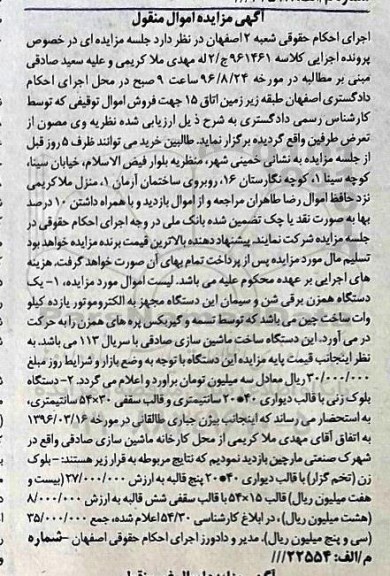 آگهی مزایده اموال منقول
اجرای احکام حقوقی شعبه ۲ اصفهان در نظر دارد جلسه مزایده ای در خصوص
پرونده اجرایی کلاسه ۹۶۱۴۶۱ ج/۲ له مهدی ملا کریمی و علیه سعید صادقی
مبنی بر مطالبه در مورخه ۹۶/۸/۲۴ ساعت ۹ صبح در محل اجرای احکام
دادگستری اصفهان طبقه زیر زمین اتاق ۱۵ جهت فروش اموال توقیفی که توسط
کارشناس رسمی دادگستری به شرح ذیل ارزیابی شده نظریه وی مصون از
تعرض طرفین واقع گردیده برگزار نماید. طالبین خرید می توانند ظرف ۵ روز قبل
از جلسه مزایده به نشانی خمینی شهر، منظریه بلوار فیض الاسلام، خیابان سینا،
کوچه سینا ۱، کوچه نگارستان ۱۶، روبروی ساختمان آرمان ۱، منزل ملاکریمی
نزد حافظ اموال رضا طاهران مراجعه و از اموال بازدید و با همراه داشتن ۱۰ درصد
بها به صورت نقد یا چک تضمین شده بانک ملی در وجه اجرای احکام حقوقی در
جلسه مزایده شرکت نمایند. پیشنهاد دهنده بالاترین قیمت برنده مزایده خواهد بود
تسلیم مال مورد مزایده پس از پرداخت تمام بهای آن صورت خواهد گرفت. هزینه
های اجرایی بر عهده محکوم علیه می باشد. لیست اموال مورد مزایده، ۱- یک
دستگاه همزن برقی شن و سیمان این دستگاه مجهز به الکتروموتور یازده کیلو
وات ساخت چین می باشد که توسط تسمه و گیربکس پره های همزن را به حرکت
در می آورد. این دستگاه ساخت ماشین سازی صادقی با سریال ۱۱۳ می باشد. به
نظر اینجانب قیمت پایه مزایده این دستگاه با توجه به وضع بازار و شرایط روز مبلغ
۳۰/۰۰۰/۰۰۰ ریال معادل سه میلیون تومان برآورد و اعلام می گردد. ۲- دستگاه
بلوک زنی با قالب دیواری ۴۰*۲۰ سانتیمتری و قالب سقفی ۳۰×۵۴ سانتیمتری،
به استحضار می رساند که اینجانب بیژن جباری طالقانی در مورخه ۱۳۹۶/۰۳/۱۶
به اتفاق آقای مهدی ملا کریمی از محل کارخانه ماشین سازی صادقی واقع در
شهرک صنعتی مارچین بازدید نمودیم که نتایج مربوطه به قرار زیر هستند: - بلوک
زن (تخم گزار) با قالب دیواری ۴۰*۲۰ پنج قالبه به ارزش ۲۷/۰۰۰/۰۰۰ (بیست و
هفت میلیون ریال) قالب ۱۵×۵۴ با قالب سقفی شش قالبه به ارزش ۸/۰۰۰/۰۰۰
(هشت میلیون ریال)، در ابلاغ کارشناسی ۵۴/۳۰ اعلام شده، جمع ۳۵/۰۰۰/۰۰۰
(سی و پنج میلیون ریال). مدیر و دادورز اجرای احکام حقوقی اصفهان - شماره
م/الف: ۲۲۵۵۴///